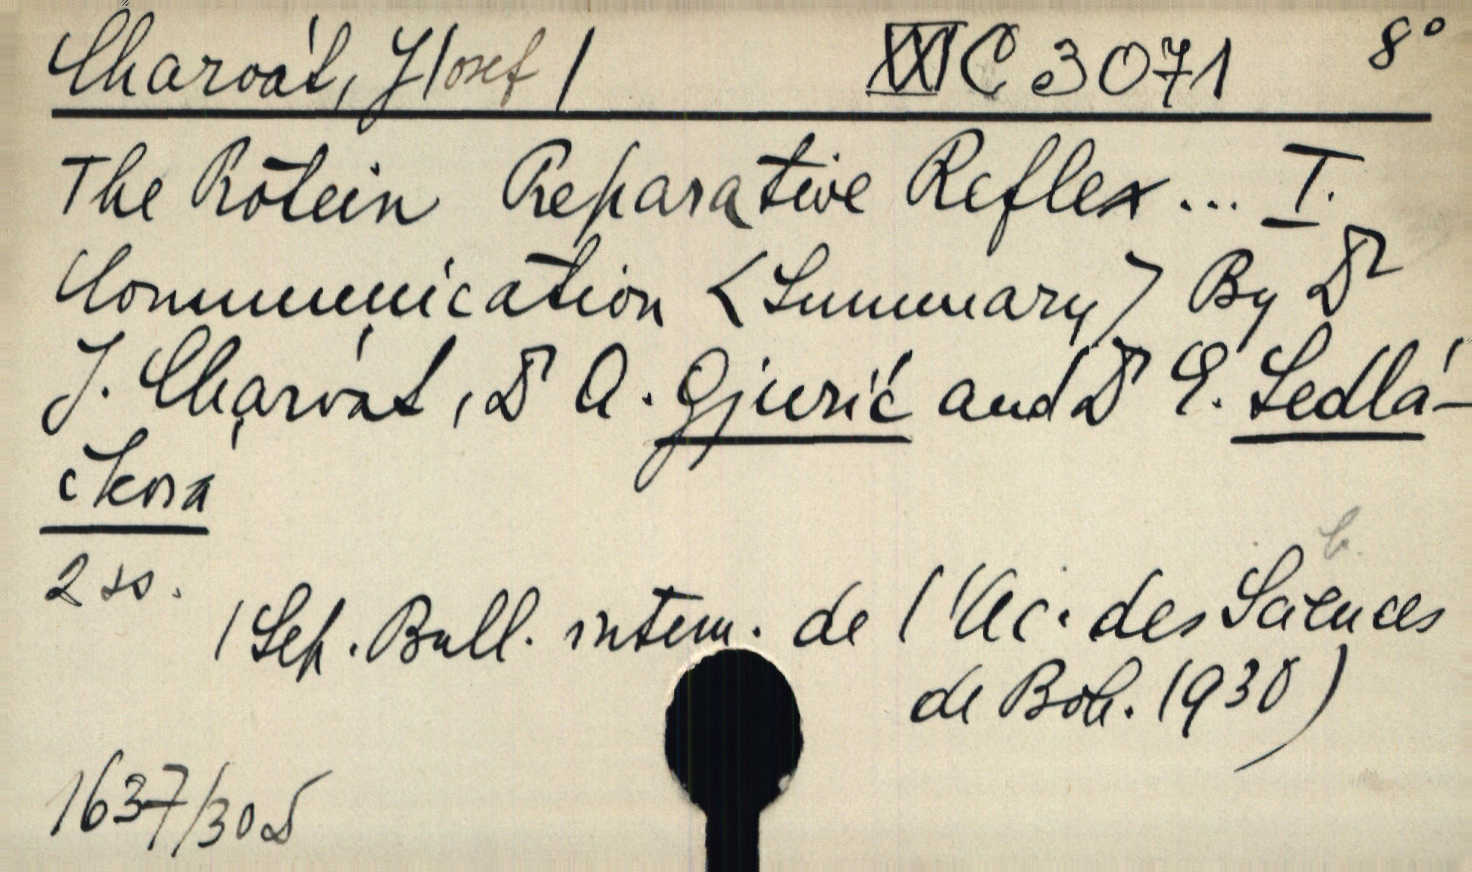 Charvát, J/osef/ XXI C 3071 8°
The Protein Reparative Reflex ... I.
Communication <Summary> By Dr
J. Charvát, Dr A. Gjurić and Dr E. Sedlá-
čkova
2 ss.
(Sep. Bull. intern. de l'Ac. des Sciences
de Boh. 1930)
1637/30 D